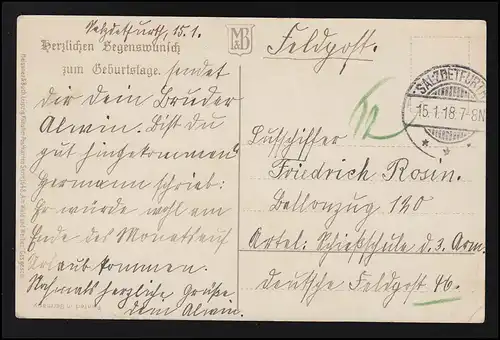 Salzdetfurth, 15.1.
Herzlichen Segenswunsch
zum Geburtstage. sendet
dir dein Bruder
Alwin. Bist du
gut hingekommen?
Hermann schrieb:
Er würde wohl am
Ende des Monats auf
Urlaub kommen.
Nochmals herzliche Grüße
dein Alwin.
MB&
Feldpost.
SALZDETFURTH
15.1.18.7-8N
Luftschiffer
Friedrich Rosin.
Ballonzug 120
Artel: Schießschule d. 3. Arm.
Deutsche Feldpost 46.
Printed in Germany